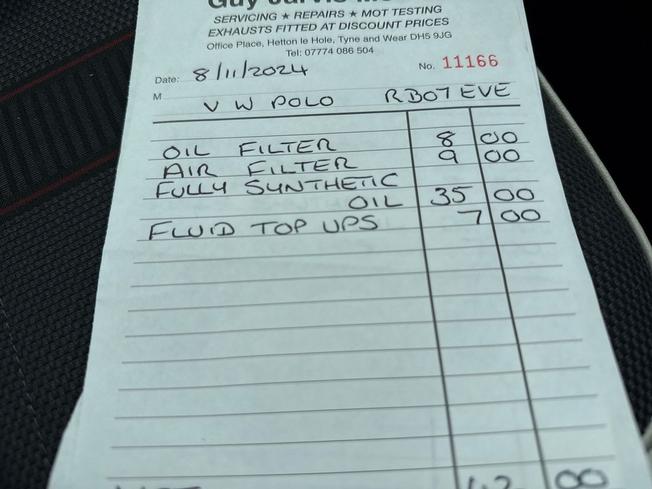 Guy Jarvis
SERVICING ★ REPAIRS ★ MOT TESTING
EXHAUSTS FITTED AT DISCOUNT PRICES
Office Place, Hetton le Hole, Tyne and Wear DH5 9JG
Tel: 07774 086 504
Date: 8/11/2024 No. 11166
M VW POLO RB07 EVE
OIL FILTER 8 00
AIR FILTER 9 00
FULLY SYNTHETIC
OIL 35 00
FLUID TOP UPS 7 00
00